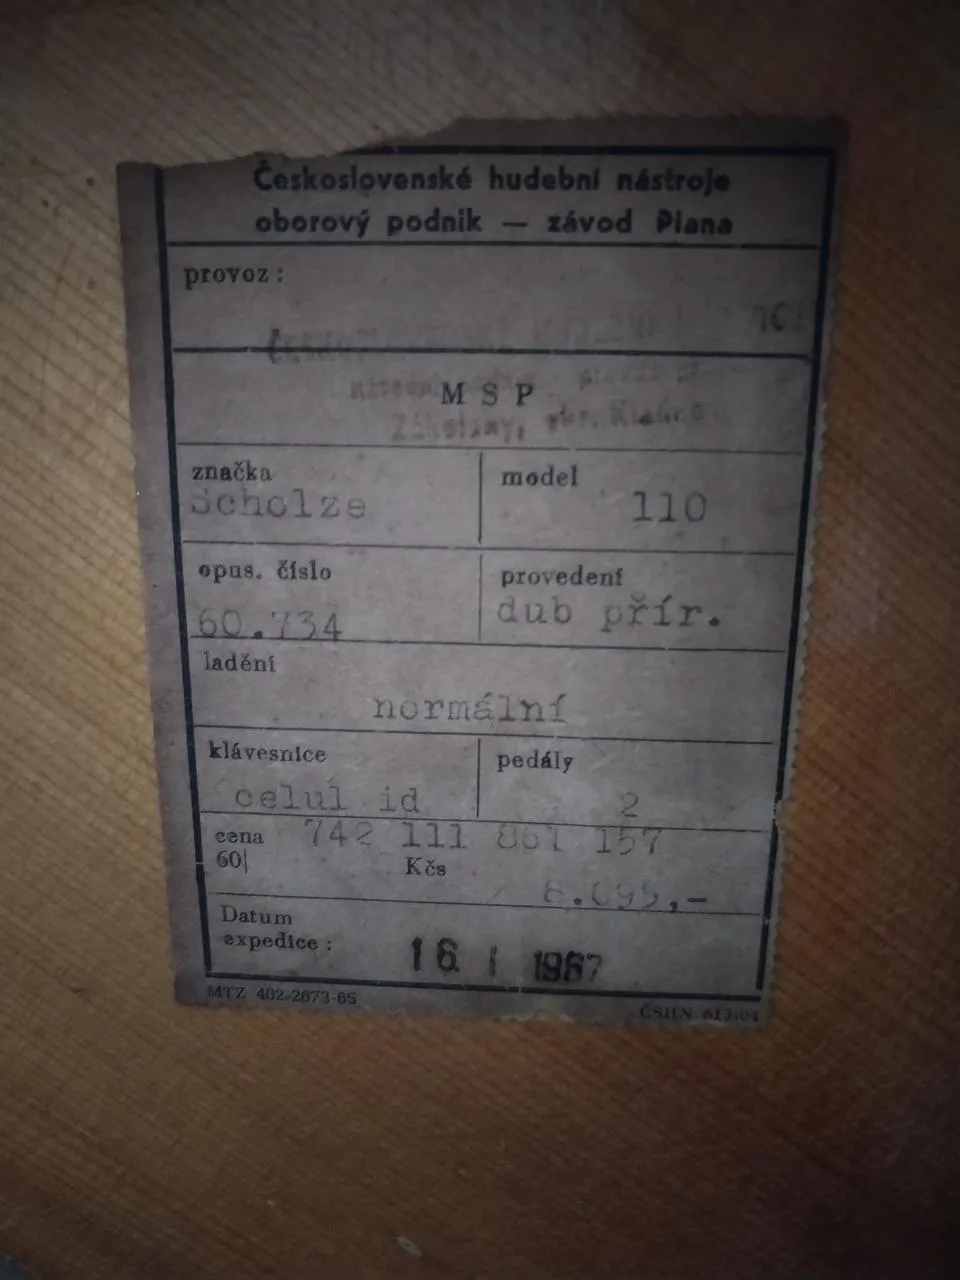 Československé hudební nástroje
oborový podnik — závod Piana
provoz :
M S P
značka
Scholze
model
110
opus. číslo
60.734
provedení
dub přír.
ladění
normální
klávesnice
celul id
pedály
2
cena 742 111 861 157
60| Kčs
8.095,-
Datum
expedice : 16. I 1967
MTZ 402-2673-65
ČSHN 613-04